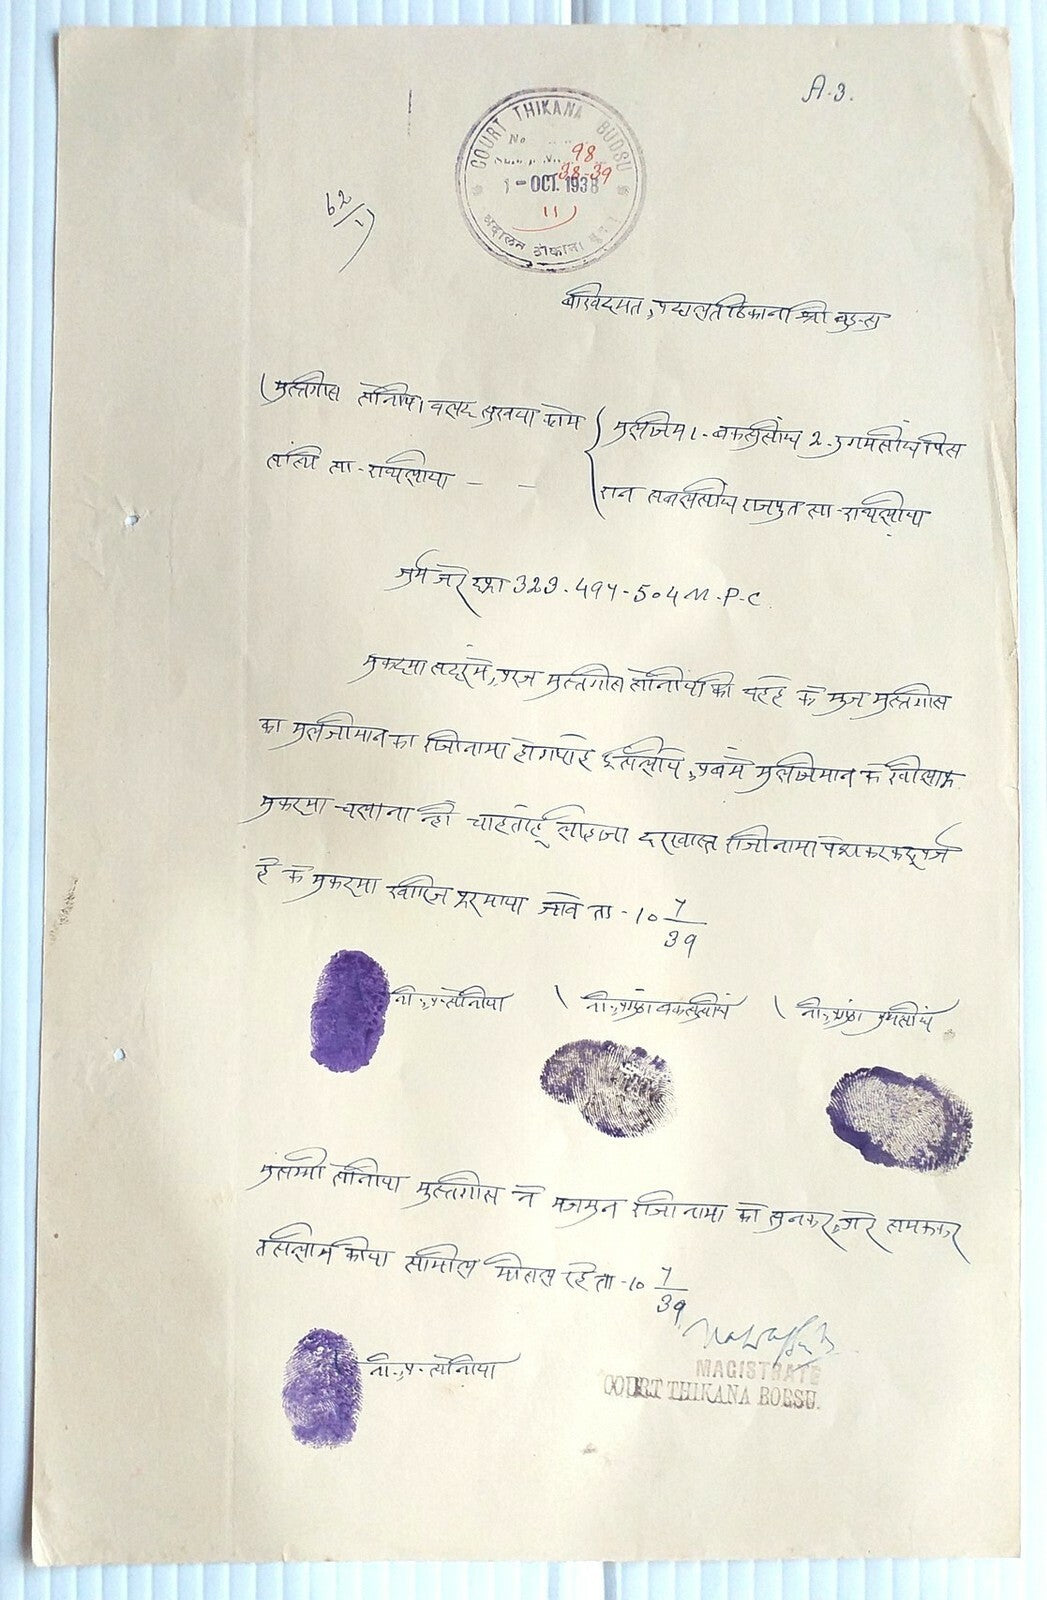 A.3.
COURT THIKANA BUDSU
No
98
38-39
1-OCT. 1938
11)
अदालत ठीकाना
62/1)
बखिदमत, अदालत ठिकाना श्री बुडसु
मुस्तगीस सोनीया वलद सुखया कोम
मुलजिम 1. बकससींघ 2. डुगमसींघ पिस
तांसि सा- राथलीया - -
रान सबलसींघ राजपुत सा- राथलीया
जुर्म जेरे दफा 323. 497-504 M.P.C.
मुकदमा सदरमे, अरज मुस्तगीस सोनीया की यहहे के मुज मुस्तगीस
का मुलजीमान का राजीनामा होगयाहे इसलीये, अबमे मुलजिमान के खीलाफ
मुकदमा चलाना नही चाहताहू लीहाजा दरखास्त राजीनामा पेश कर क अर्ज
हे के मुकदमा खारिज फरमाया जावे ता-10 7/39
नी. अ- सोनीया
नी. अंगुठा बकससींघ
नी. अंगुठा
मुसम्मी सोनीया मुस्तगीस ने मजमुन राजीनामा को सुनकर, ओर समजकर
तसलीम कीया सामील मीसल रहे ता-10 7/39
MAGISTRATE
COURT THIKANA BOESU.
नी. अ- सोनीया